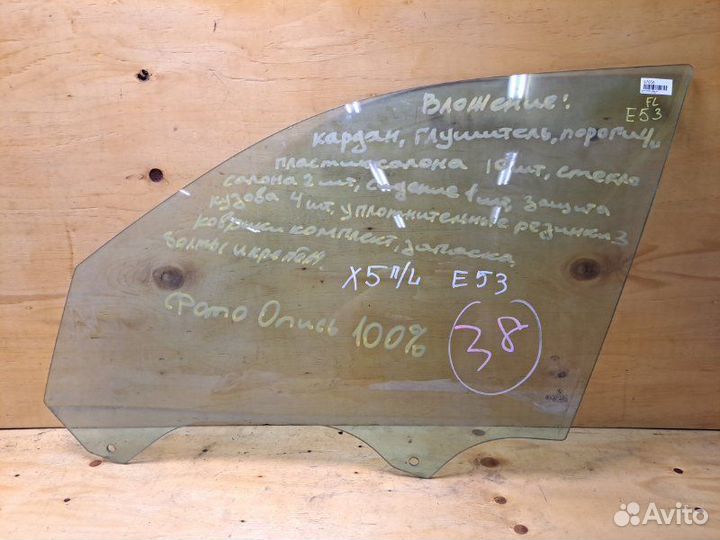 FL
E53
Вложение:
кардан, глушитель, пороги 4
пластик салона 10 шт, стекло
салона 2 шт, сидение 1 шт, защита
кузова 4 шт, уплотнительные резинки 3
коврики комплект, запаска
Болты и крепеж.
X5 П/L E53
Фото Опись 100%
38
Avito